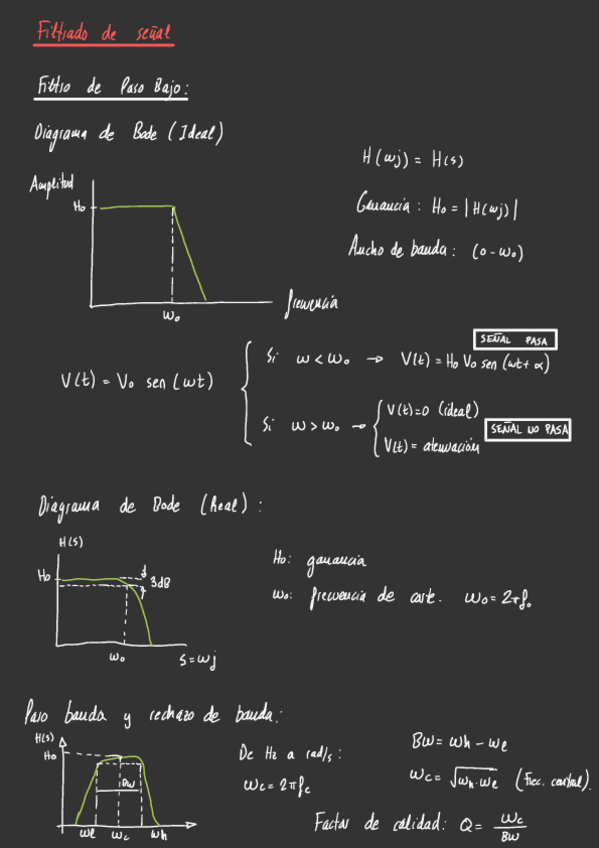 Filtrado de señal
Filtro de Paso Bajo:
Diagrama de Bode (Ideal)
H(ωj) = H(s)
Amplitud
Ho
Ganancia: Ho = |H(ωj)|
Ancho de banda: (0-ωo)
frecuencia
ωo
V(t) = Vo sen (ωt)
Si ω < ωo → V(t) = Ho Vo sen (ωt + α)
SEÑAL PASA
Si ω > ωo →
V(t)=0 (ideal)
V(t) = atenuación
SEÑAL NO PASA
Diagrama de Bode (Real):
H(s)
Ho
3dB
ωo
s=ωj
Ho: ganancia
ωo: frecuencia de corte. ωo = 2πfo
Paso banda y rechazo de banda:
H(s)
Ho
BW
ωl ωc ωh
De Hz a rad/s:
ωc = 2πfc
BW = ωh - ωl
ωc = √ωh·ωl (Frec. central).
Factor de calidad: Q = ωc/BW